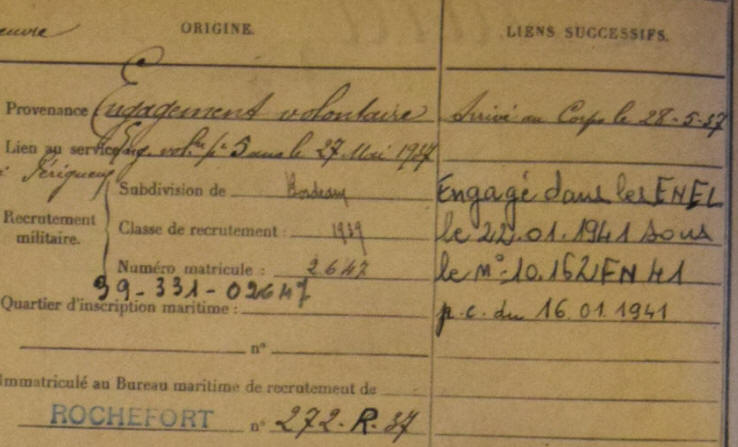 œuvre
ORIGINE.
LIENS SUCCESSIFS.
Provenance Engagement volontaire
Arrivé au Corps le 28-5-37
Lien au service Eng. vol.re pr 5 ans le 27 Mai 1937
à Périgueux
Subdivision de Bordeaux
Engagé dans les ENEL
Recrutement militaire.
Classe de recrutement : 1939
le 22.01.1941 sous
Numéro matricule : 2647
le N° 10.162 FN 41
39-331-02647
Quartier d'inscription maritime :
p.c. du 16.01.1941
n°
Immatriculé au Bureau maritime de recrutement de
ROCHEFORT n° 272-R-37